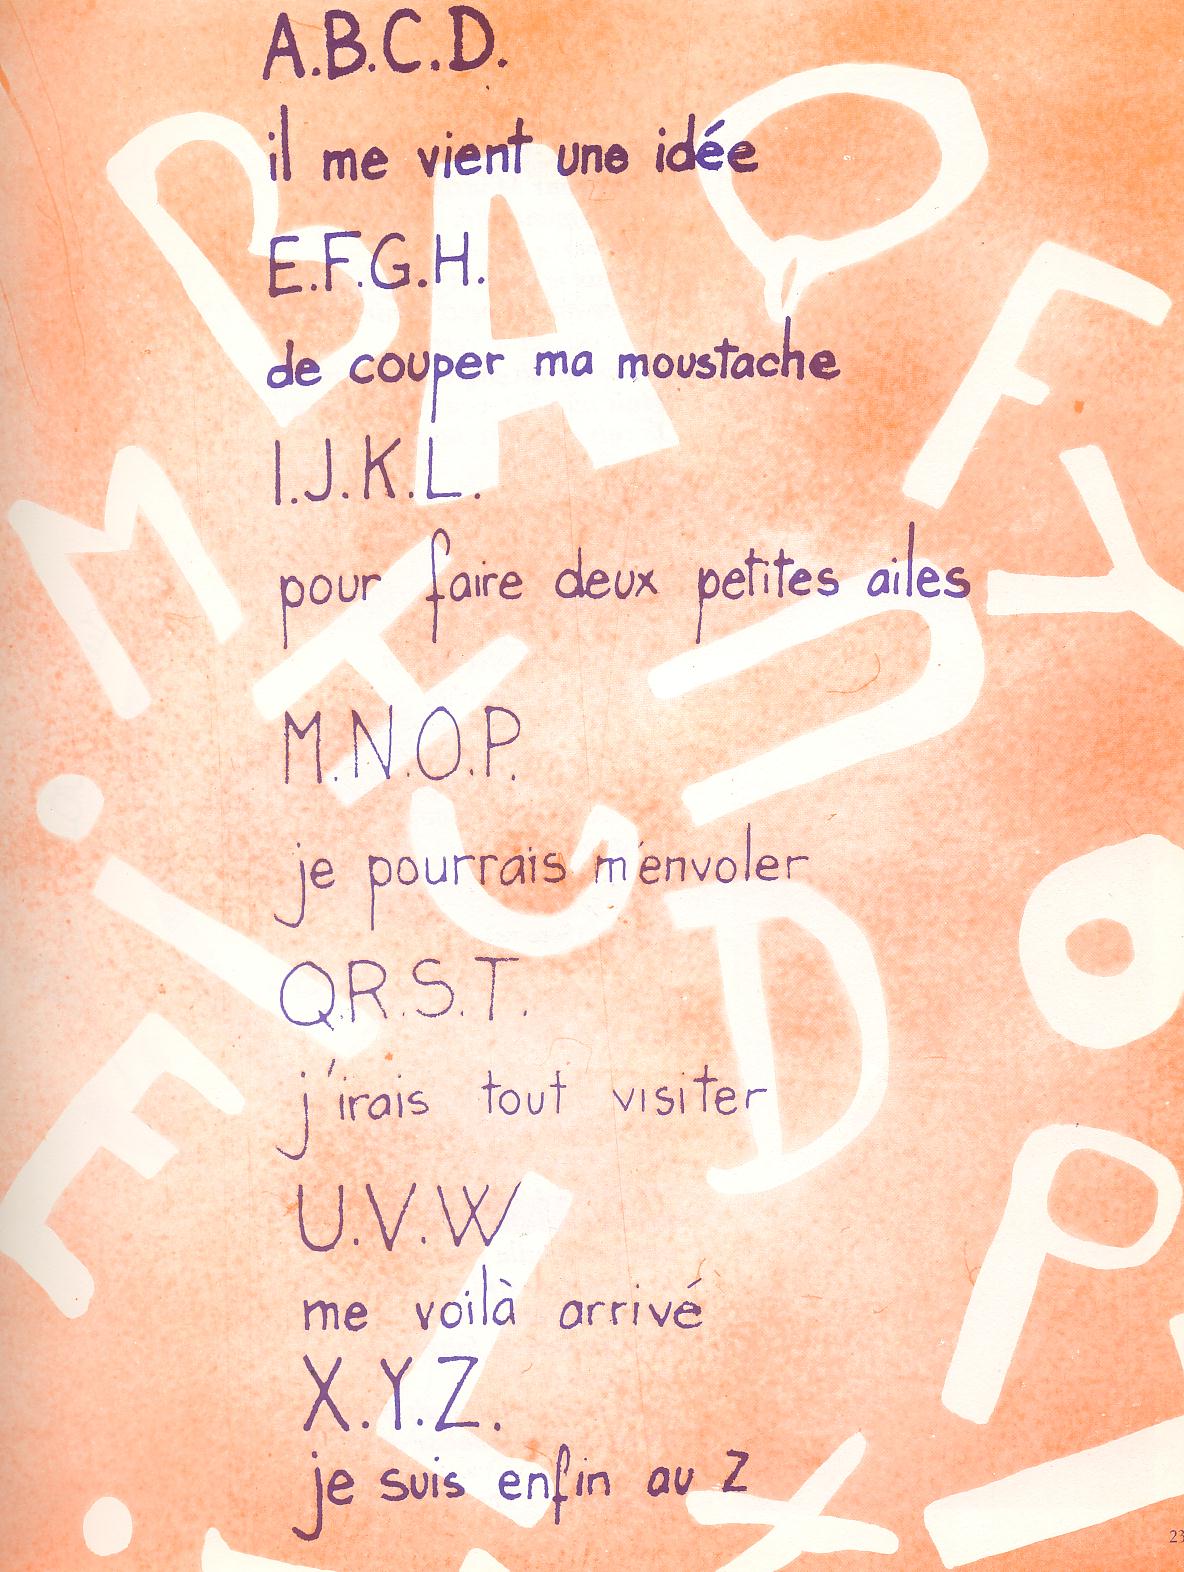 A.B.C.D.
il me vient une idée
E.F.G.H.
de couper ma moustache
I.J.K.L.
pour faire deux petites ailes
M.N.O.P.
je pourrais m'envoler
Q.R.S.T.
j'irais tout visiter
U.V.W
me voilà arrivé
X.Y.Z.
je suis enfin au Z
23